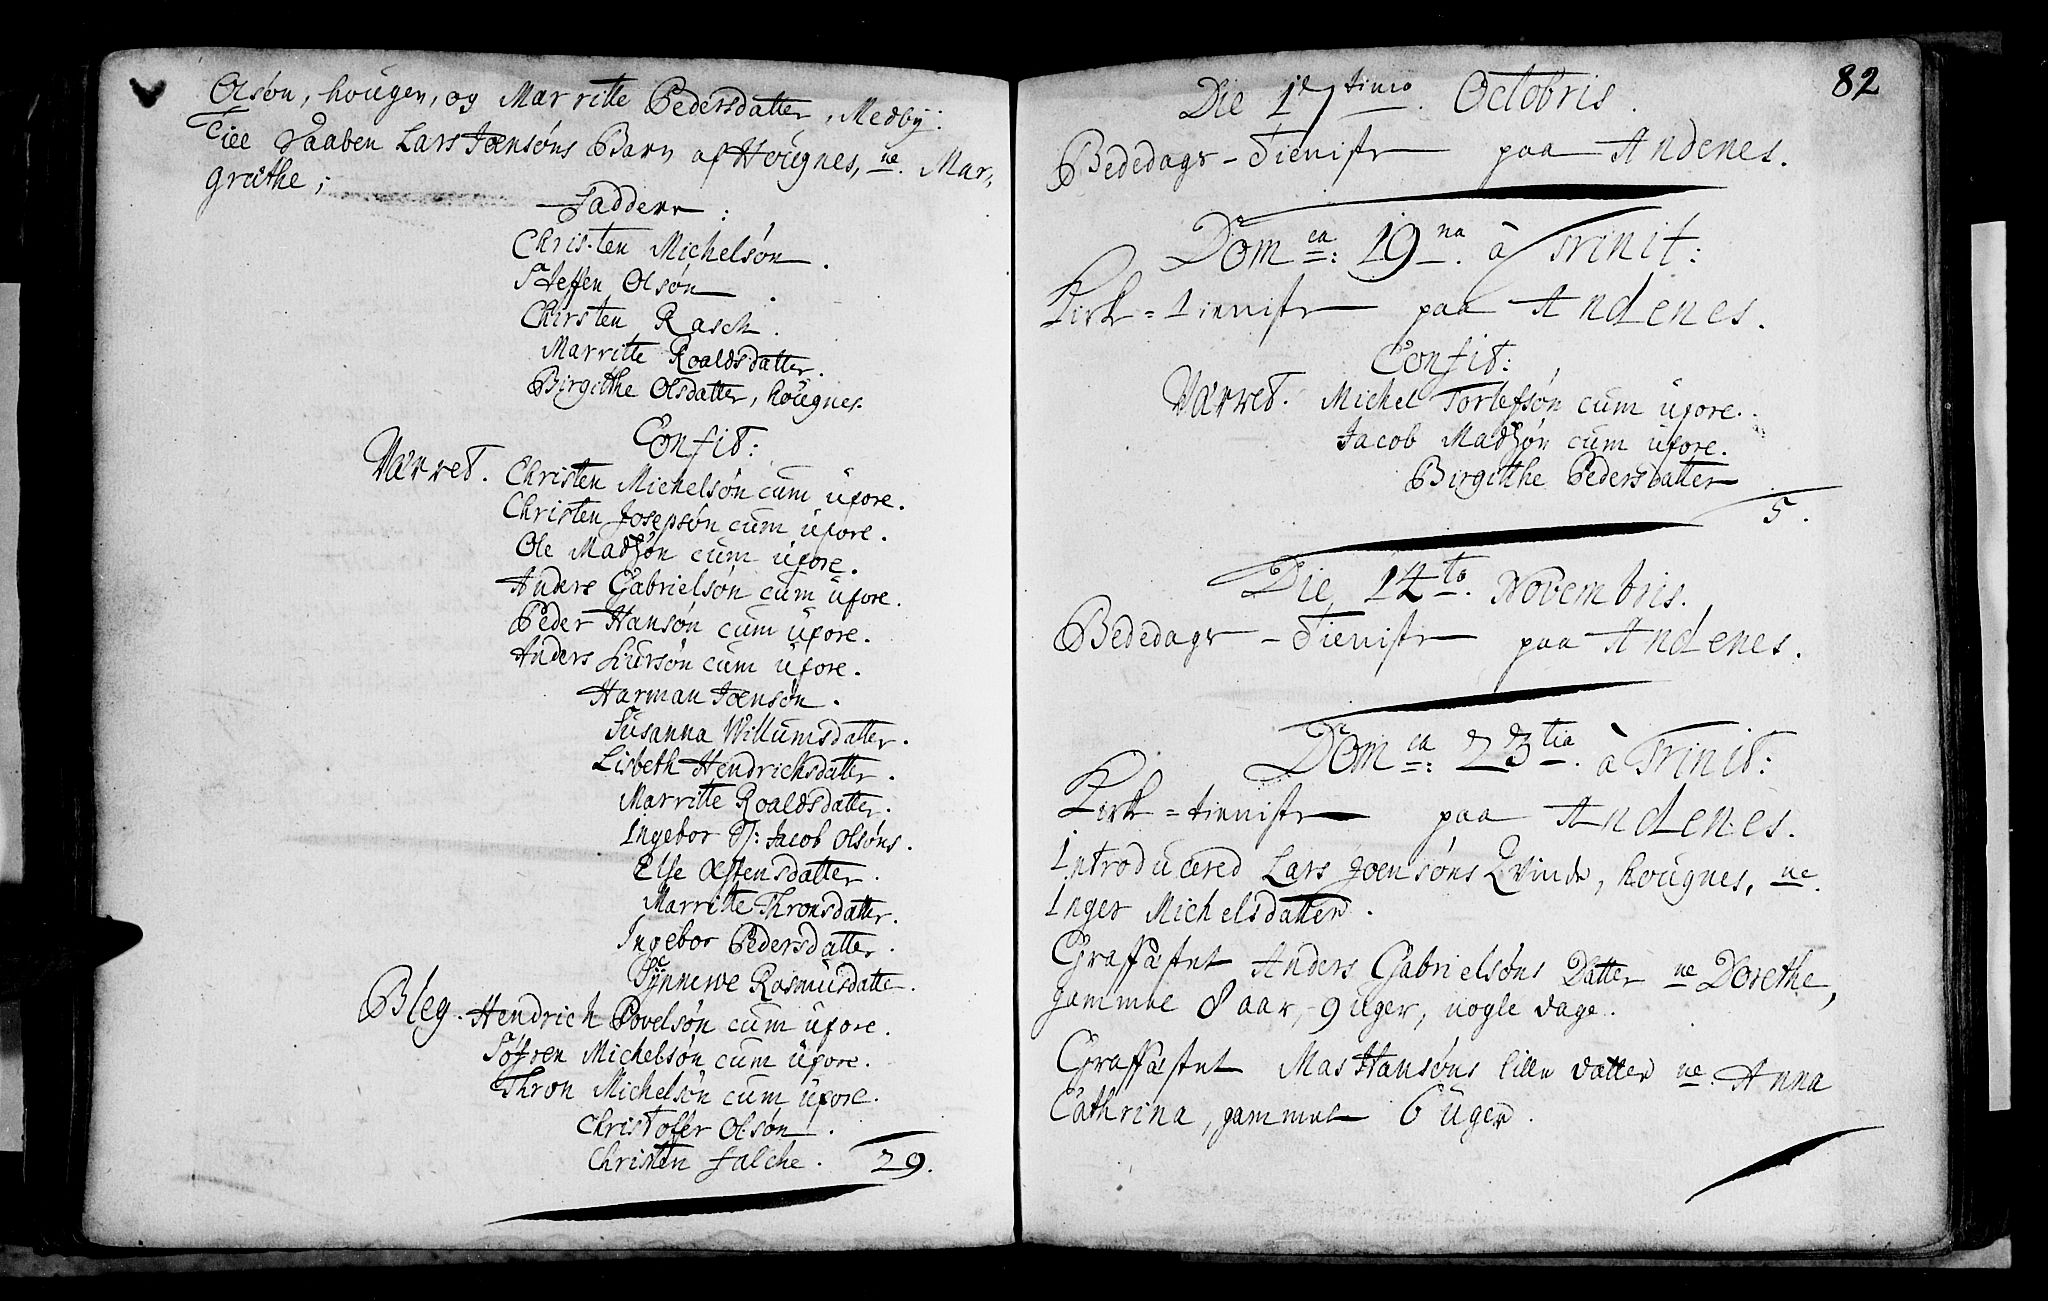 Olsøn, hougen, og Marritte Pedersdatter, Medby.
Till Daaben Lars Joensøns Barn af Hougnes, ne. Mar-
grathe;
Faddere:
Christen Michelsøn.
Steffen Olsøn.
Chirsten Rasch.
Marritte Roaldsdatter.
Birgitthe Olsdatter, hougnes.
Confit:
Værret. Christen Michelsøn cum uxore.
Christen Josepsøn cum uxore.
Ole Madsøn cum uxore.
Anders Gabrielsøn cum uxore.
Peder Hansøn cum uxore.
Anders Lursøn cum uxore.
Harman Joensøn.
Susanna Willumsdatter.
Lisbeth Hendrichsdatter.
Marritte Roaldsdatter.
Ingebor S: Jacob Olsøns.
Else Østensdatter.
Marritte Thronsdatter.
Ingebor Pedersdatter.
Synnewe Rasmusdatter.
Bleg. Hendrich Povelsøn cum uxore.
Søfren Michelsøn cum uxore.
Thron Michelsøn cum uxore.
Christofer Olsøn.
Christen falche. 29.
82
Die 17timo. Octobris.
Bededags-Tieniste paa Andenes.
Domca: 19na. à Trinit:
Kirk=Tieniste paa Andenes.
Confit:
Værret. Michel Torlefsøn cum uxore.
Jacob Madsøn cum uxore.
Birgitthe Pedersdatter
5.
Die 14to. Novembris.
Bededags-Tieniste paa Andenes.
Domca: 23tia. à Trinit:
Kirk=tieniste paa Andenes.
Introducered Lars Joensøns Qvinde, hougnes, ne.
Inger Michelsdatter.
Graffæstet Anders Gabrielsøns Datter ne Dorethe,
gammel 8 aar, 9 uger, nogle dage.
Graffæstet Mas Hansøns lille datter ne. Anna
Cathrina, gammel 6 uger.